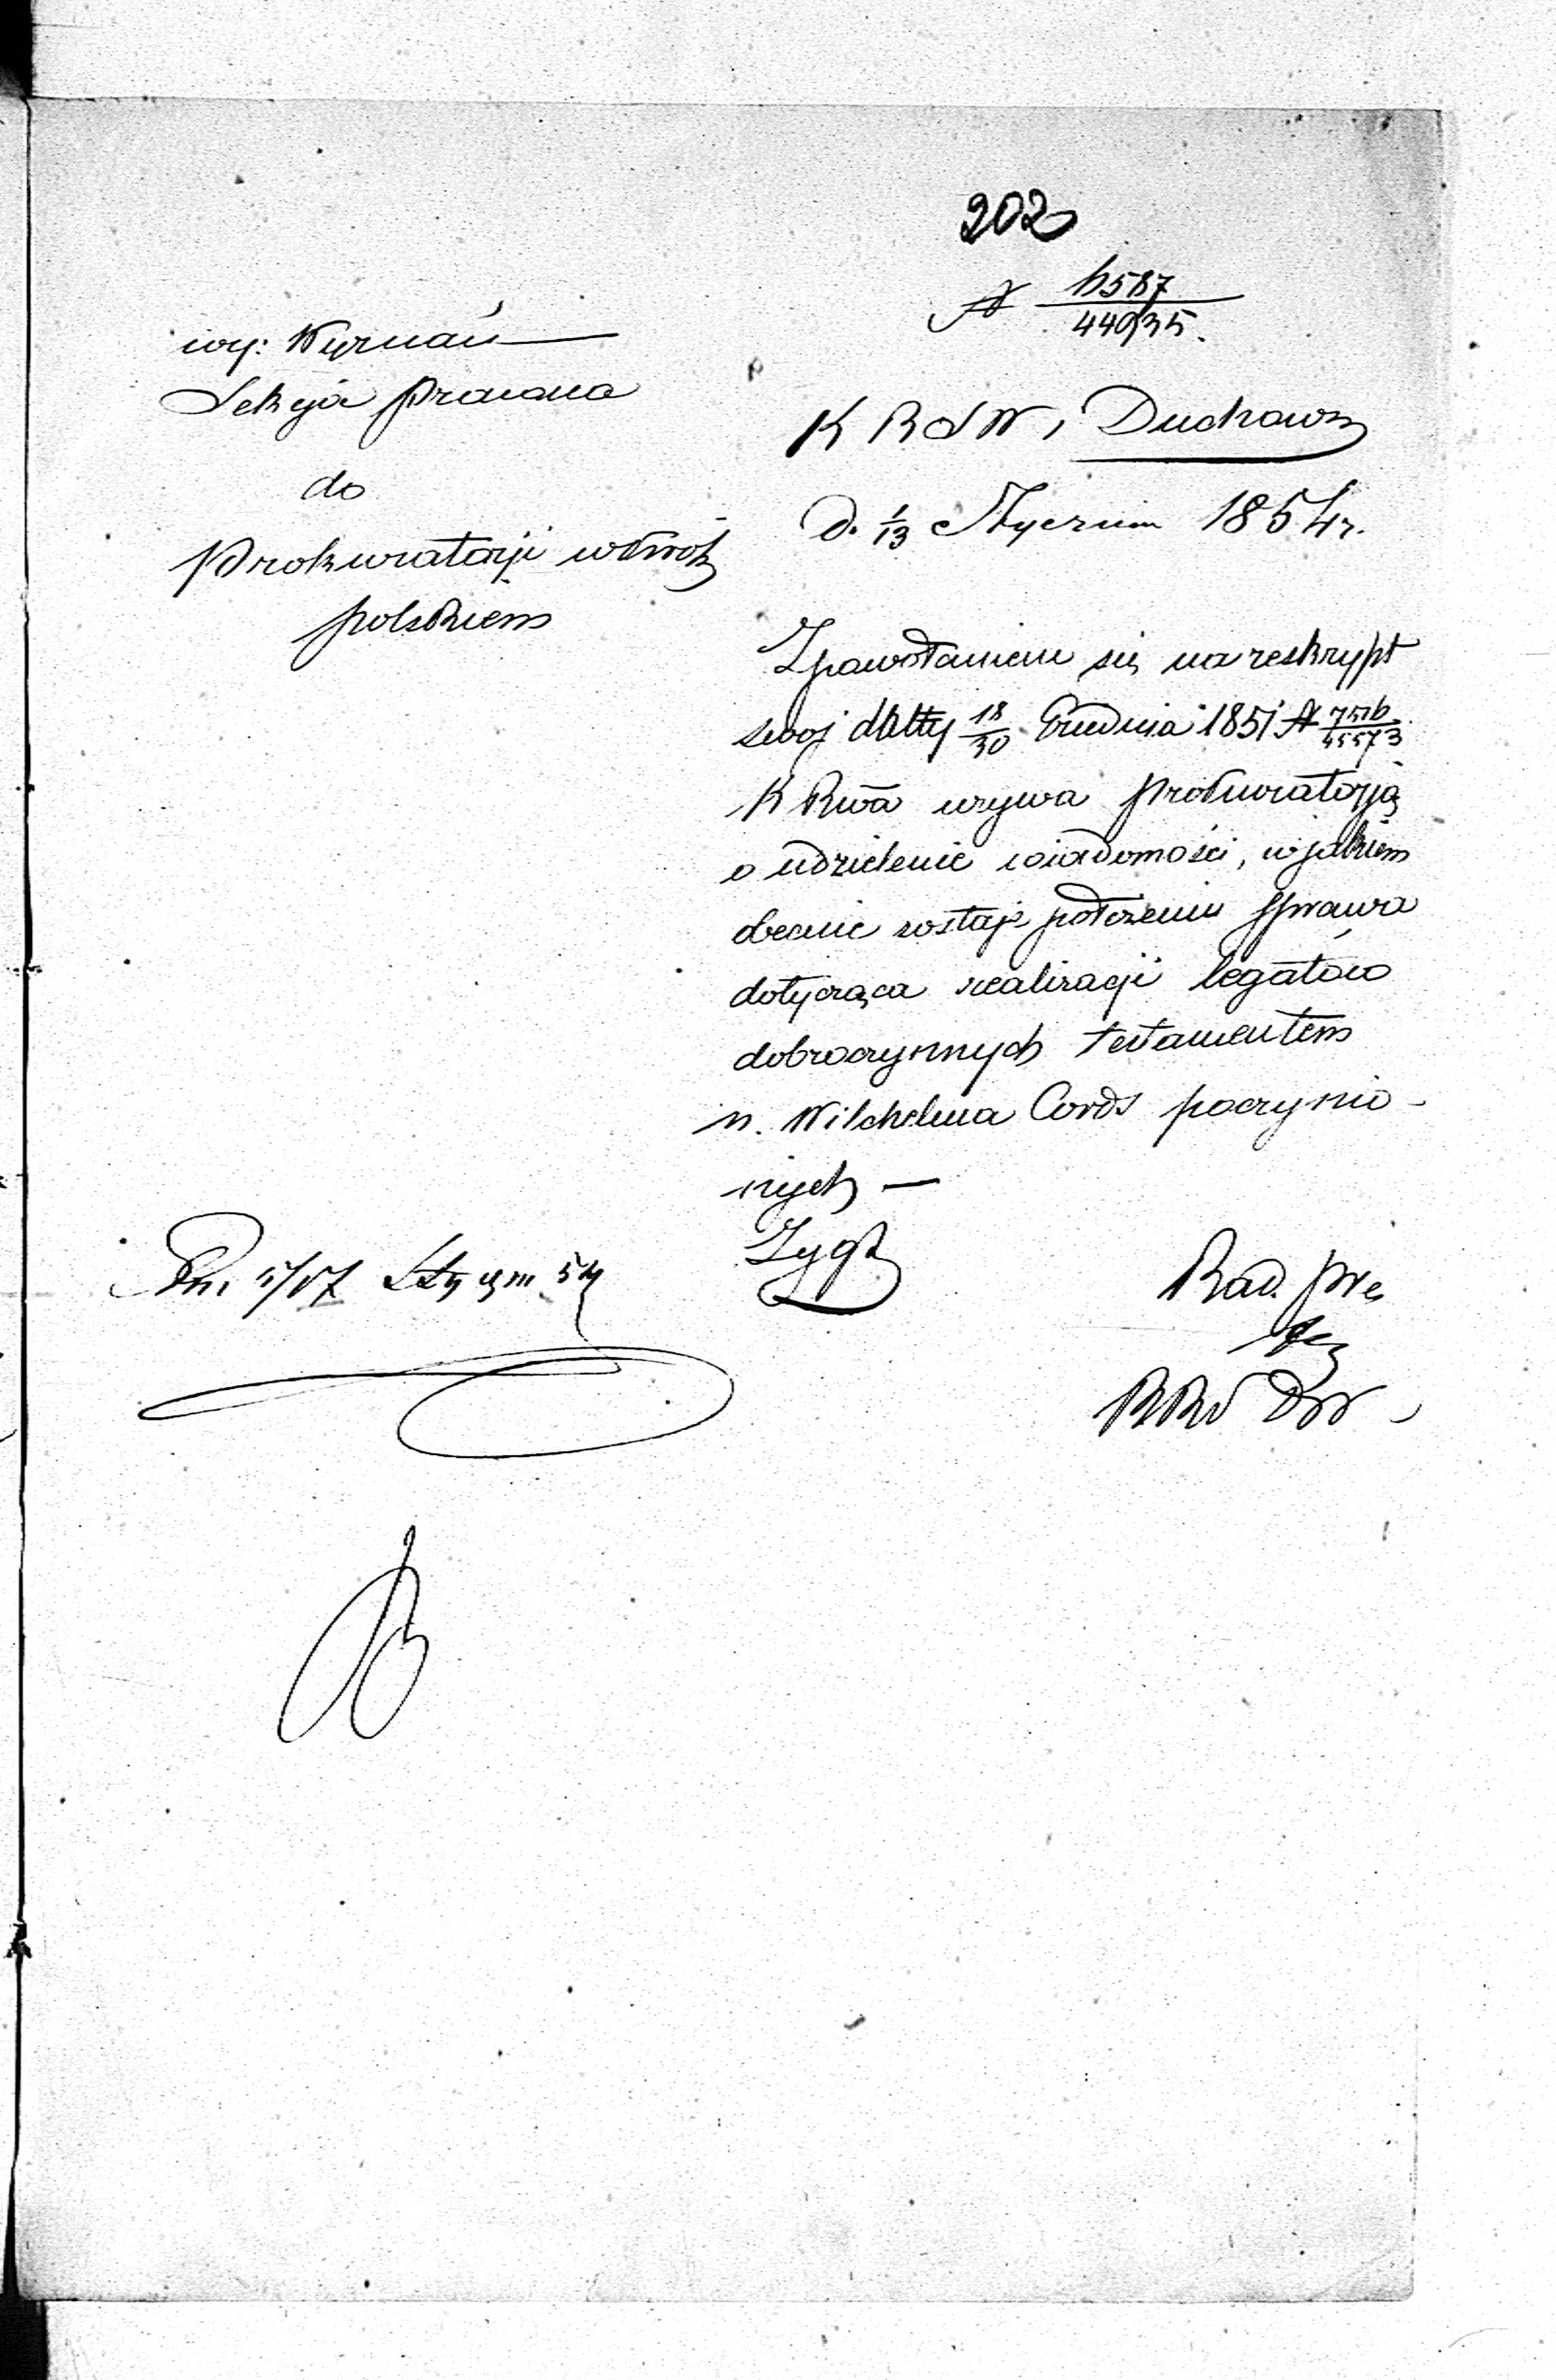 202
N 6587
44935.
wy: Wyznań
Sekcja Prawna
do
Prokuratorji w Król
polskiem
K R S W i Duchown
D. 1/13 Stycznia 1854 r.
Z powołaniem się na reskrypt
swój datty 18/30 Grudnia 1851 N
K Rwa wzywa Prokuratorją
o udzielenie wiadomości, w jakiem
obecnie zostaje położeniu sprawa
dotycząca realizacji legatów
dobroczynnych testamentem
n. Wilchelma Cords poczynio-
nych —
Dn. 5/17 Stycznia 54
Rad. pre